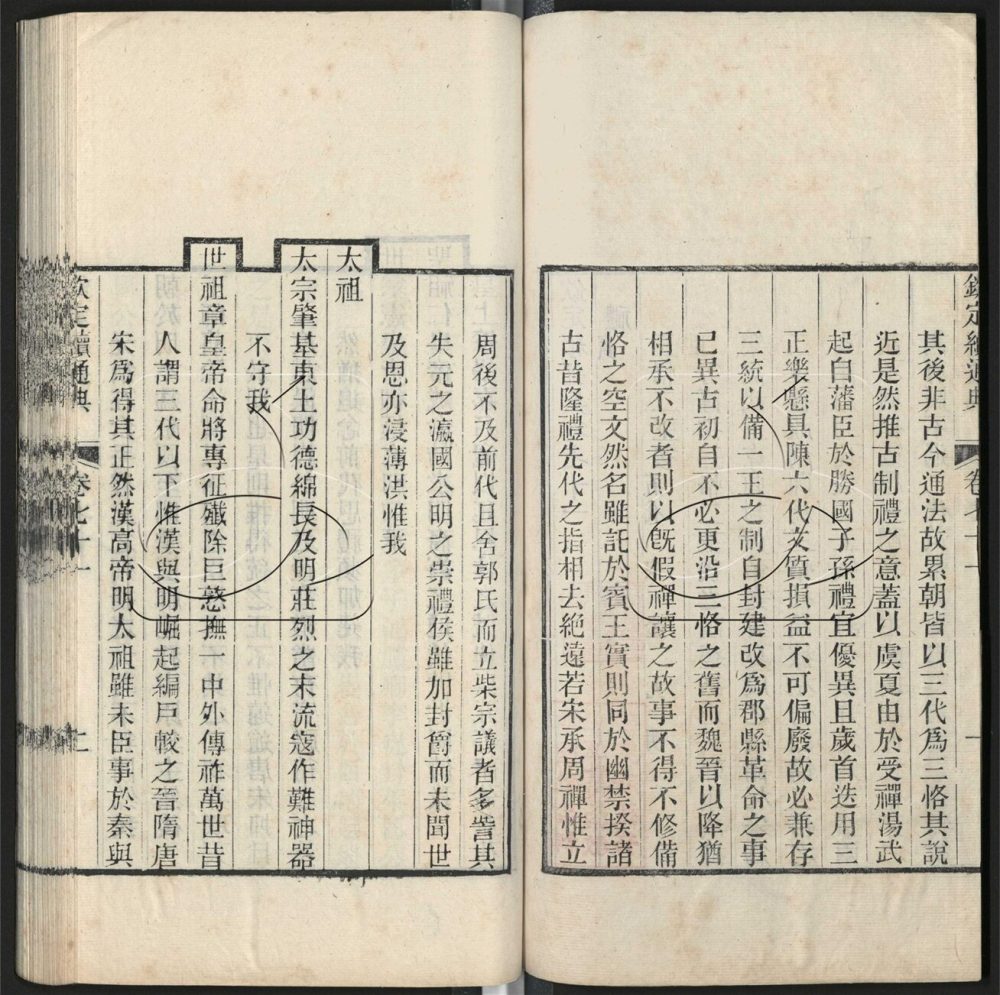 欽定續通典 卷七十一 一
其後非古今通法故累朝皆以三代爲三恪其說
近是然推古制禮之意蓋以虞夏由於受禪湯武
起自藩臣於勝國子孫禮宜優異且歲首迭用三
正樂懸具陳六代文質損益不可偏廢故必兼存
三統以備一王之制自封建改爲郡縣革命之事
已異古初自不必更沿三恪之舊而魏晉以降猶
相承不改者則以旣假禪讓之故事不得不修備
恪之空文然名雖託於賓王實則同於幽禁揆諸
古昔隆禮先代之指相去絶遠若宋承周禪惟立
周後不及前代且舍郭氏而立柴宗議者多訾其
失元之瀛國公明之崇禮侯雖加封爵而未聞世
及恩亦浸薄洪惟我
太祖
太宗肇基東土功德綿長及明莊烈之末流寇作難神器
不守我
世祖章皇帝命將專征殲除巨憝撫一中外傳祚萬世昔
人謂三代以下惟漢與明崛起編戸較之晉隋唐
宋爲得其正然漢高帝明太祖雖未臣事於秦與
欽定續通典 卷七十一 二